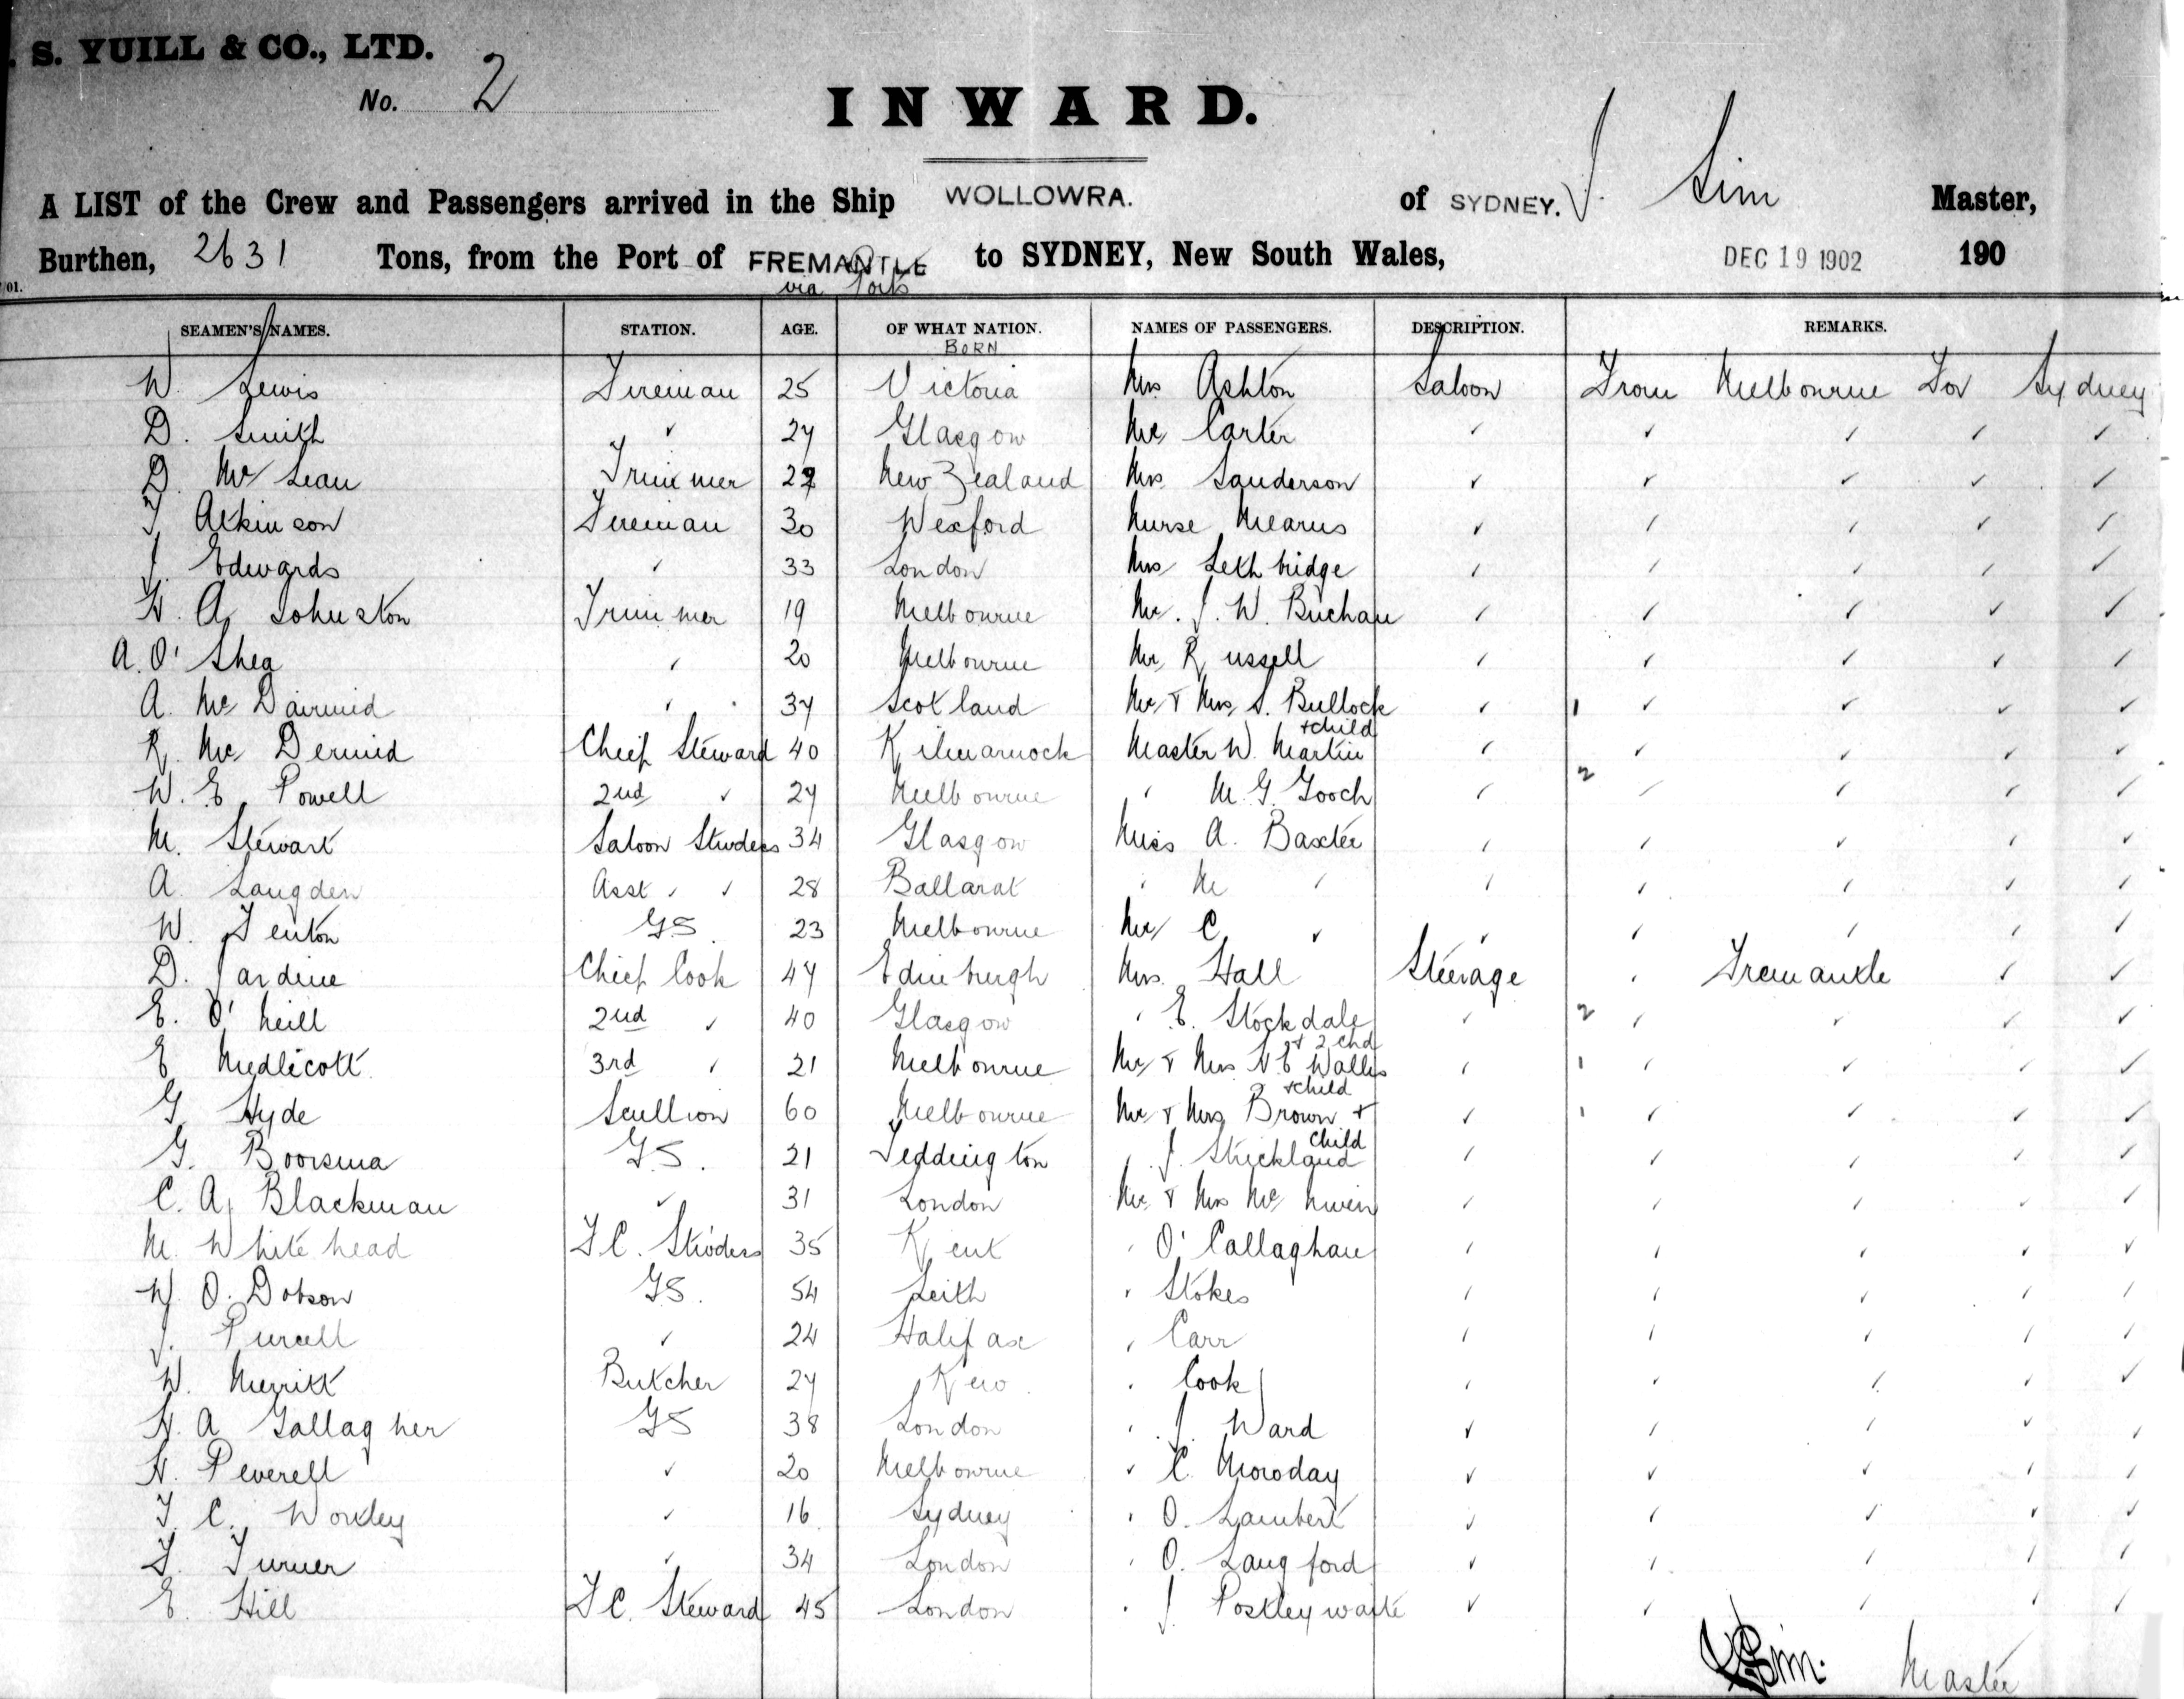 . S. YUILL & CO., LTD.
No. 2
INWARD.
A LIST of the Crew and Passengers arrived in the Ship WOLLOWRA. of SYDNEY. J. Sim Master,
Burthen, 2631 Tons, from the Port of FREMANTLE to SYDNEY, New South Wales, DEC 19 1902 190
01. via Ports
SEAMEN'S NAMES. STATION. AGE. OF WHAT NATION. NAMES OF PASSENGERS. DESCRIPTION. REMARKS.
BORN
W. Lewis Fireman 25 Victoria Mrs Ashton Saloon From Melbourne For Sydney
D. Smith " 27 Glasgow Mr Carter " " " " "
D. Mc Lean Trimmer 22 New Zealand Mrs Sanderson " " " " "
T Atkinson Fireman 30 Wexford Nurse Mearns " " " " "
J. Edwards " 33 London Mrs Lethbridge " " " " "
H. A. Johnston Trimmer 19 Melbourne Mr. J. W. Buchan " " " " "
A. O' Shea " 20 Melbourne Mr Russell " " " " "
A. Mc Dairmid " 37 Scotland Mr & Mrs S. Bullock " 1 " " " "
+ child
R. Mc Dermid Chief Steward 40 Kilmarnock Master W. Martin " " " " "
W. E. Powell 2nd " 27 Melbourne " M. G. Gooch " 2 " " " "
M. Stewart Saloon Stwdess 34 Glasgow Miss A. Baxter " " " " "
A. Langden Asst " " 28 Ballarat " M " " " " " "
W. Fenton GS. 23 Melbourne Mr C " " " " " "
D. Jardine Chief Cook 47 Edinburgh Mrs. Hall Steerage " Fremantle " "
E. O' Neill 2nd " 40 Glasgow " E. Stockdale " 2 " " " "
+ 2 chd
E Medlicott 3rd " 21 Melbourne Mr & Mrs H. E Wallis " 1 " " " "
+ child
G. Hyde Scullion 60 Melbourne Mr & Mrs Brown + " 1 " " " "
child
G. Boorsma G.S. 21 Teddington " J. Strickland " " " " "
C. A. Blackman " 31 London Mr & Mrs Mc Niven " " " " "
M. Whitehead F.C. Stwdess 35 Kent " O' Callaghan " " " " "
W. O. Dobson GS. 54 Leith " Stokes " " " " "
J. Purcell " 24 Halifax " Carr " " " " "
W. Merritt Butcher 27 Kew. " Cook " " " " "
H. A Gallagher GS 38 London " J. Ward " " " " "
H. Peverell " 20 Melbourne " C. " " " " "
T. C. Worley " 16 Sydney " O. Lambert " " " " "
F. Turner " 34 London " O. Langford " " " " "
E. Hill F.C. Steward 45 London " J. Postleywaite " " " " "
J. Sim. Master